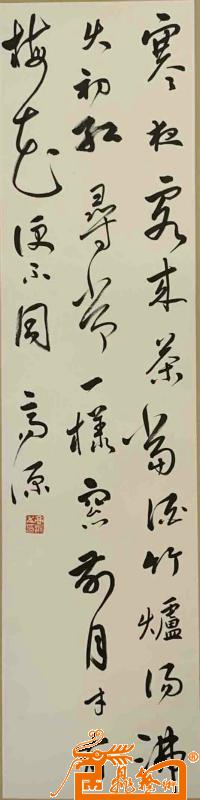 寒夜客來茶當酒竹爐湯沸
火初紅尋常一樣窗前月才有
梅花便不同 高源